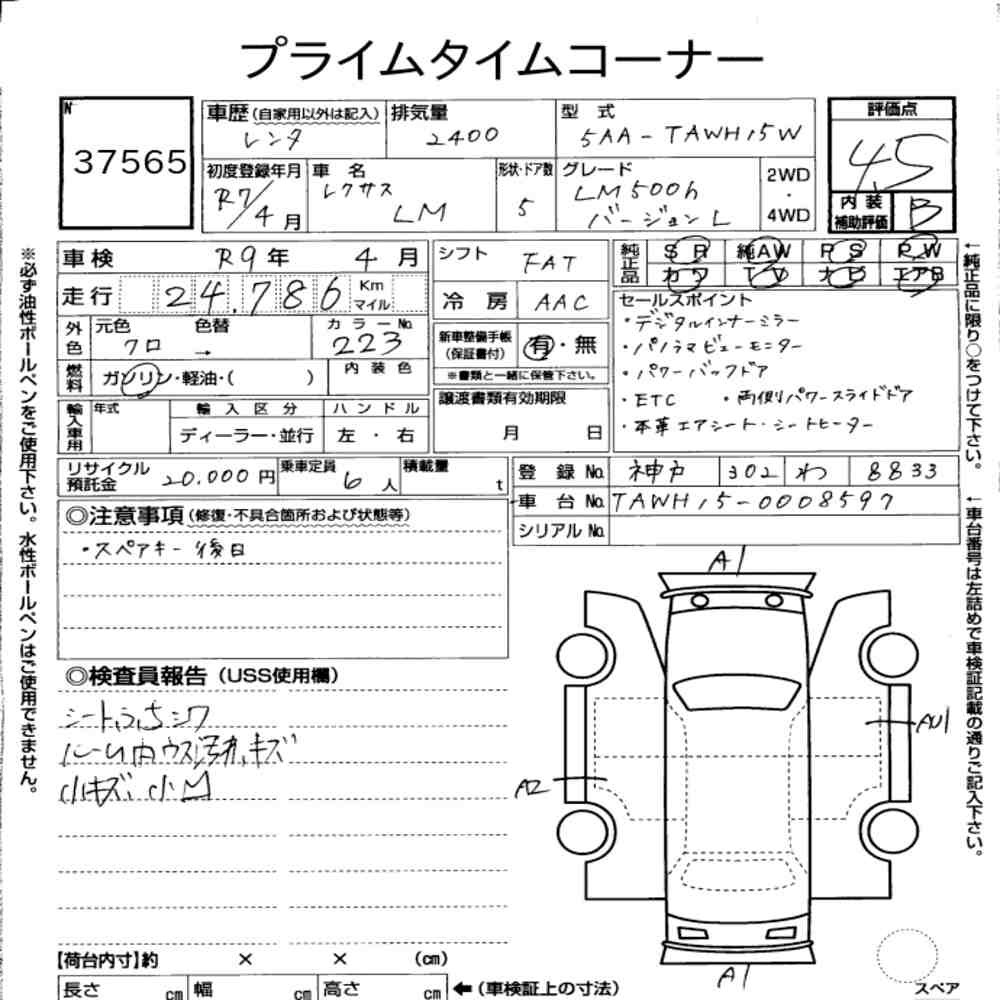 プライムタイムコーナー
№
37565
車歴(自家用以外は記入)
レンタ
排気量
2400
型式
5AA-TAWH15W
評価点
4.5
初度登録年月
R7/4月
車名
レクサス
LM
形状・ドア数
5
グレード
LM500h
バージョンL
2WD
・
4WD
内装
補助評価
B
車検 R9年 4月
走行 24.786 Km
マイル
外色
元色 色替
クロ →
カラーNo.
223
燃料
ガソリン・軽油・( )
内装色
輸入車用
年式
輸入区分
ディーラー・並行
ハンドル
左・右
シフト FAT
冷房 AAC
新車整備手帳
(保証書付)
有・無
※書類と一緒に保管下さい。
譲渡書類有効期限
月 日
純正品
SR 純AW PS PW
カワ TV ナビ エアB
セールスポイント
・デジタルインナーミラー
・パノラマビューモニター
・パワーバックドア
・ETC ・両側パワースライドドア
・本革エアシート・シートヒーター
リサイクル
預託金
20,000円
乗車定員
6人
積載量
t
登録No. 神戸 302 わ 8833
車台No. TAWH15-0008597
シリアルNo.
◎注意事項(修復・不具合箇所および状態等)
・スペアキー後日
◎検査員報告(USS使用欄)
シート、うちシワ
ルーム内ウス汚れ、キズ
小キズ、小M
A1
AU1
A2
A1
【荷台内寸】約 × × (cm)
長さ cm 幅 cm 高さ cm ←(車検証上の寸法)
スペア
※必ず油性ボールペンをご使用下さい。水性ボールペンはご使用できません。
←純正品に限り○をつけて下さい。
←車台番号は左詰めで車検証記載の通りご記入下さい。